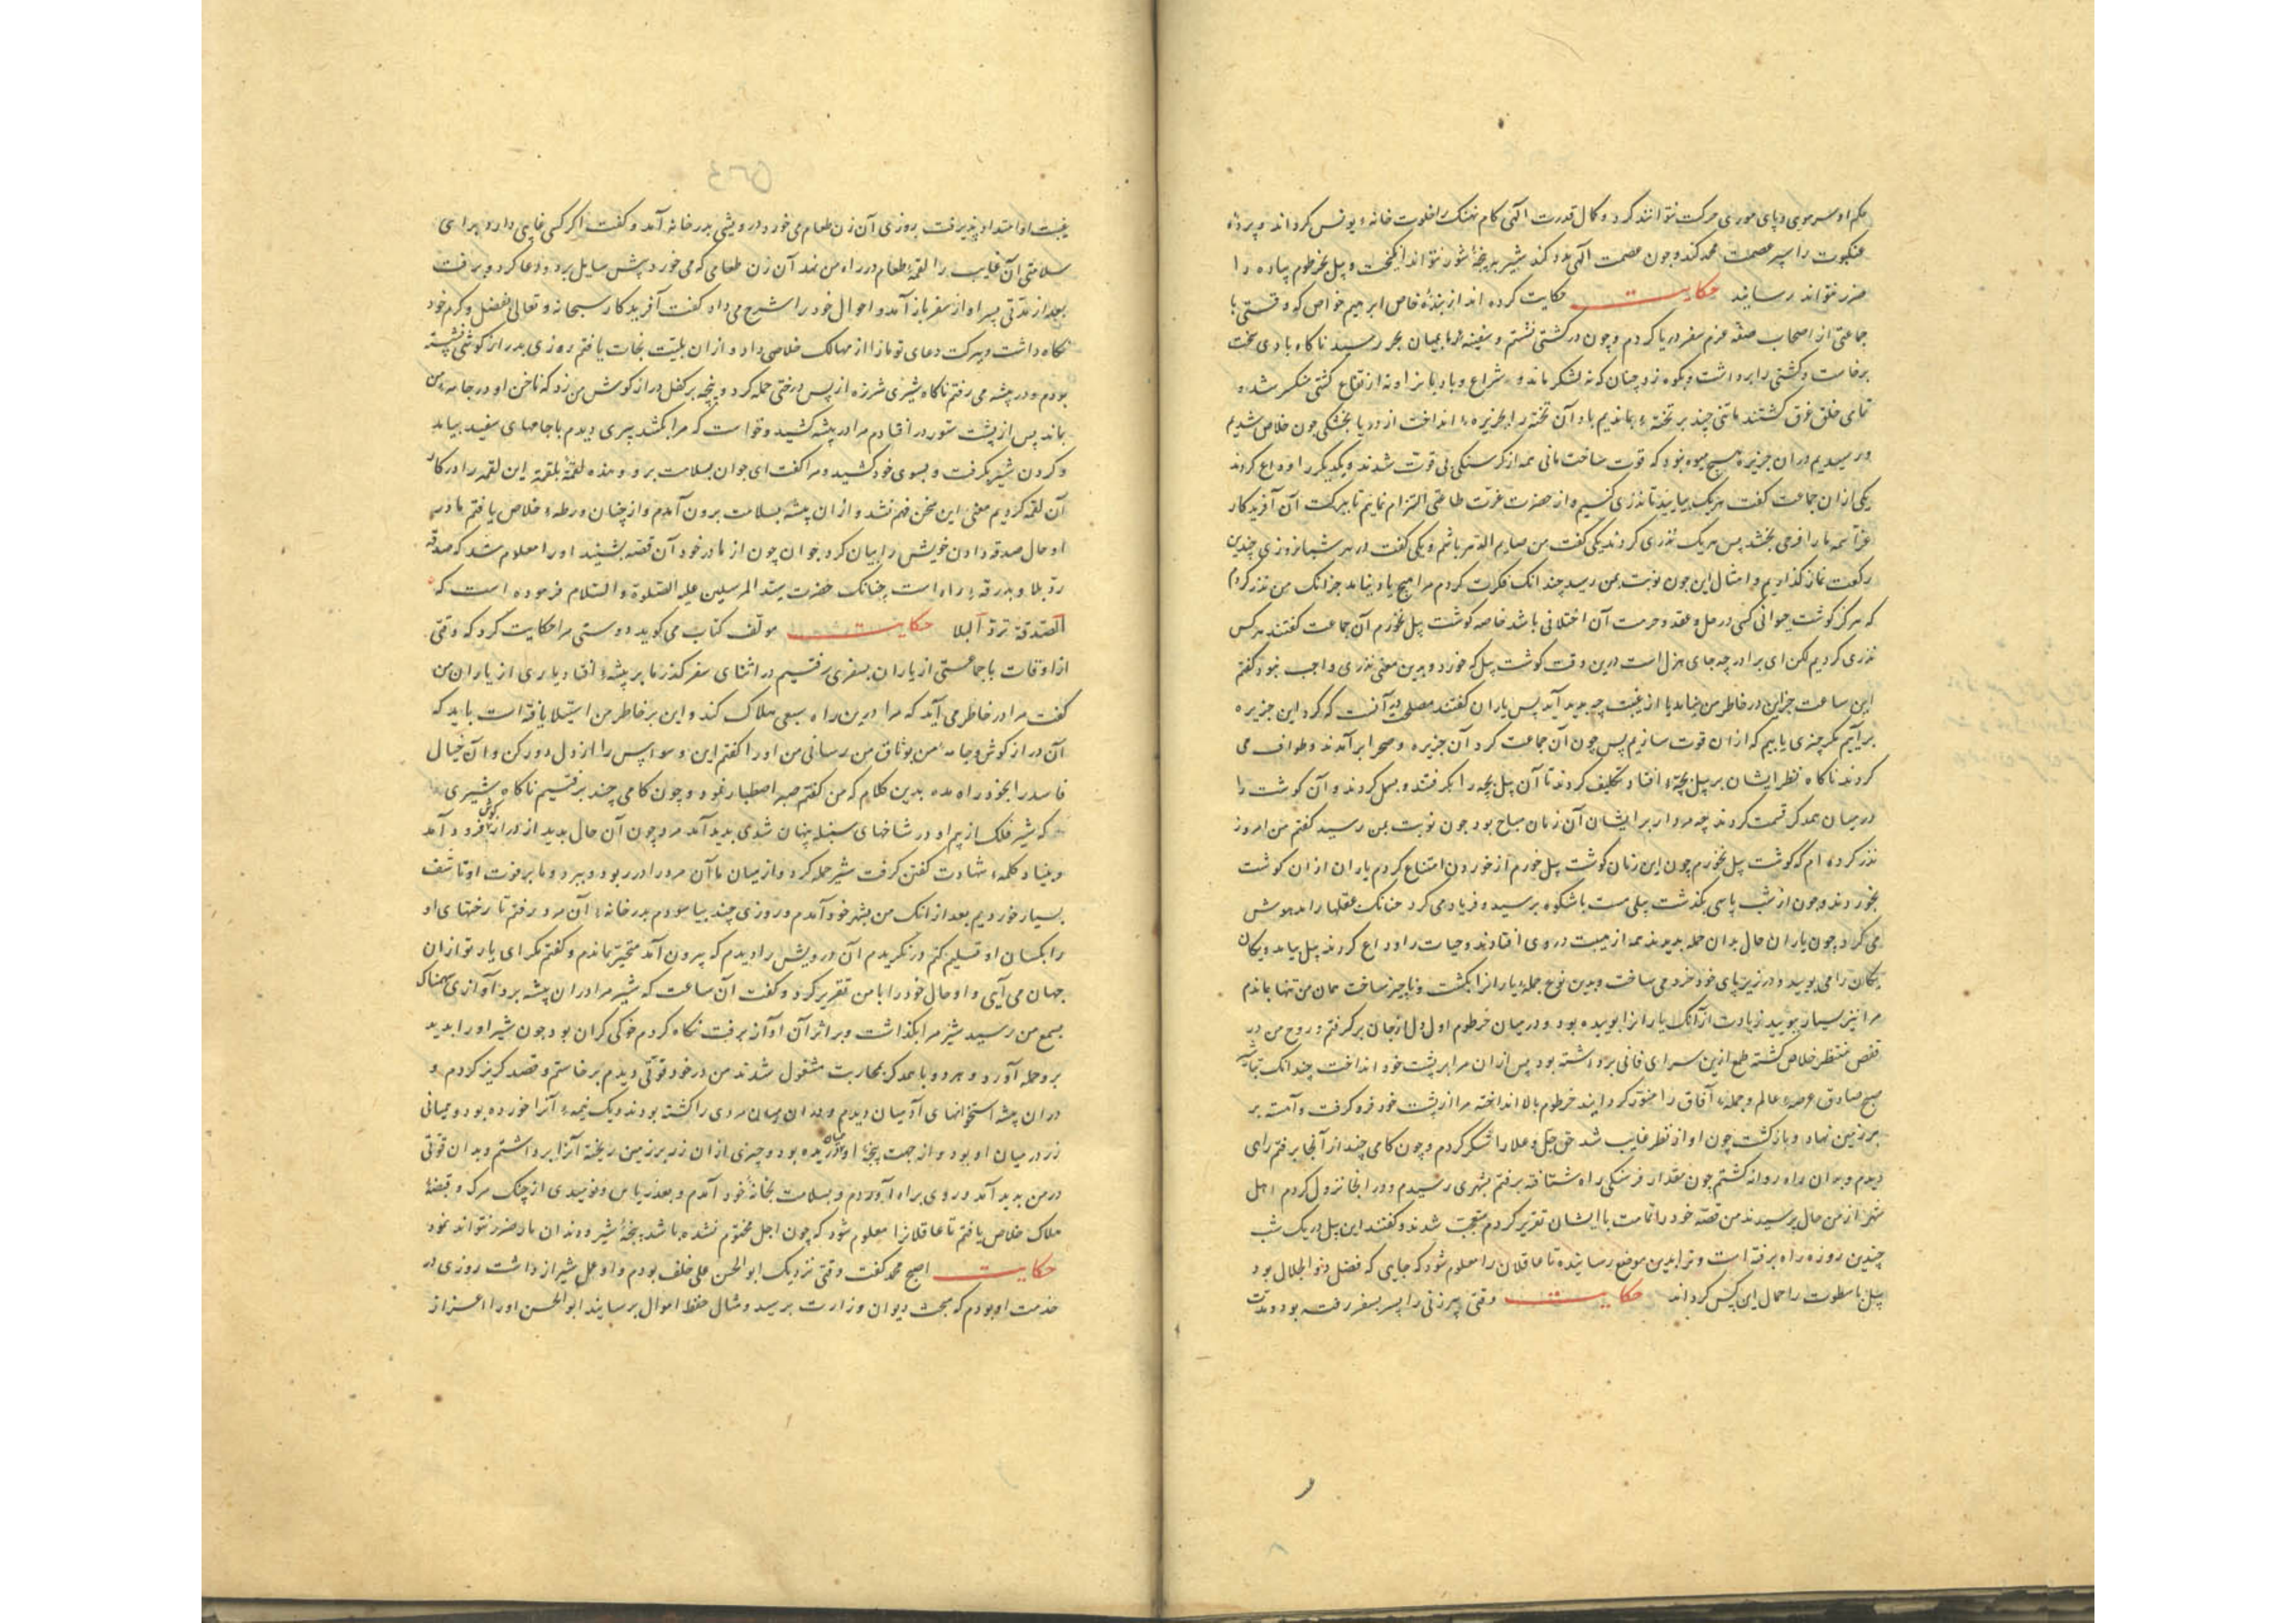 حکم او سر موی و پای موری حرکت نتوانند کرد و کمال قدرت الهی کام نهنک را خلوت خانه یونس کرداند و پرده
عنکبوت را سپر عصمت محمد کند و چون عصمت الهی مدد کند شیر بپنجه شور نتواند انکیخت و پیل بخرطوم پیاده را
ضرر نتواند رسانید حکایت حکایت کرده اند از بنده خاص ابرهیم خواص که وقتی با
جماعتی از اصحاب صفه عزم سفر دریا کردم و چون در کشتی نشستم و سفینه ما بمیان بحر رسید ناکاه بادی سخت
برخاست و کشتی را برداشت و بکوه زد چنان که نه لنکر ماند و نه شراع و باد بانرا و نه از قناع کشتی منکسر شد و
تمامی خلق غرق کشتند ما تنی چند بر تخته بماندیم باد آن تخته را بجزیره انداخت از دریا بخشکی چون خلاص شدیم
و رسیدیم در آن جزیره هیچ میوه نبود که قوت ساخت مانی همه از کرسنکی بی قوت شدند و یکدیکر را وداع کردند
یکی از ان جماعت کفت هر یک بیایید تا نذری کنیم و از حضرت عزت طاعتی التزام نماییم تا ببرکت آن آفریدکار
عزاسمه ما را فرجی بخشد پس هر یک نذری کردند یکی کفت من صایم الدهر باشم و یکی کفت در هر شبانروزی چندین
رکعت نماز کذاریم و امثال این چون نوبت بمن رسید چندانک فکرت کردم مرا هیچ یاد نیامد جز انک من نذر کردم
که هرکز کوشت حیوانی کسی در حل و عقد و حرمت آن اختلافی باشد خاصه کوشت پیل نخورم آن جماعت کفتند هر کس
نذری کردیم لکن ای برادر چه جای هزل است درین وقت کوشت پیل که خورد و بدین معنی نذری واجب نبود کفتم
این ساعت جز این در خاطر من نیامد تا از غیبت چه پدید آید پس یاران کفتند مصلحت آنست که کرد این جزیره
برآییم مکر چیزی یابیم که از ان قوت سازیم پس چون آن جماعت کرد آن جزیره و صحرا برآمدند و طواف می
کردند ناکاه نظر ایشان بر پیل بچه افتاد تکلیف کردند تا آن پیل بچه را بکرفتند و بسمل کردند و آن کوشت را
در میان همدکر قسمت کردند چه مردار بر ایشان آن زمان مباح بود چون نوبت بمن رسید کفتم من امروز
نذر کرده ام که کوشت پیل نخورم چون این زمان کوشت پیل خورم از خوردن امتناع کردم یاران از ان کوشت
بخوردند و چون از شب پاسی بکذشت پیلی مست باشکوه برسید و فریاد می کرد چنانک عقلها را مدهوش
می کرد چون یاران حال بدان حمله بدیدند همه از هیبت در روی افتادند و حیات را وداع کردند پیل بیامد و یکان
یکان را می بویید و در زیر پای خود خرد می ساخت و بدین نوع جمله یارانرا بکشت و ناچیز ساخت همان من تنها بماندم
مرا نیز بسیار ببویید زیادت از آنک یارانرا بوییده بود و در میان خرطوم اول دل از جان برکرفتم و روح من در
قفص منتظر خلاص کشته طمع ازین سرای فانی برداشته بود پس از ان مرا بر پشت خود انداخت چندانک تباشیر
صبح صادق عرصه عالم و جمله آفاق را منور کردانید خرطوم بالا انداخته مرا از پشت خود فرو کرفت و آهسته بر
برزمین نهاد و بازکشت چون او از نظر غایب شد حق جل و علا را شکر کردم و چون کامی چند از آنجا برفتم راهی
دیدم و بدان راه روانه کشتم چون مقدار فرسنکی راه شتافته برفتم بشهری رسیدم و در انجا نزول کردم اهل
شهر از من حال پرسیدند من قصه خود را تمامت با ایشان تقریر کردم متعجب شدند و کفتند این پیل در یک شب
چندین روزه راه برفته است و ترا بدین موضع رسانیده تا عاقلان را معلوم شود که جایی که فضل ذوالجلال بود
پیل با سطوت را حمال این کس کرداند حکایت وقتی پیر زنی را پسر بسفر رفته بود و مدت
غیبت او امتداد پذیرفت روزی آن زن طعام می خورد درویشی بدر خانه آمد و کفت اکر کسی غایبی دارد برای
سلامتی آن غایب را لقمه طعام در راه من نهد آن زن طعامی که می خورد پیش سایل برد و دعا کرد و برفت
بعد از مدتی پسر او از سفر باز آمد و احوال خود را شرح می داد کفت آفریدکار سبحانه و تعالی بفضل و کرم خود
نکاه داشت و ببرکت دعای تو ما را از مهالک خلاصی داد و ازان بلیت نجات یافتم روزی بر دراز کوشی نشسته
بودم و در بیشه می رفتم ناکاه شیری شرزه از پس درختی حمله کرد و پنجه بر کفل دراز کوش من زد که ناخن او در جامه من
بماند پس از پشت ستور در افتادم مرا در بیشه کشید و خواست که مرا بکشد پیری دیدم با جامهای سفید بیامد
و کردن شیر بکرفت و بسوی خود کشید و مرا کفت ای جوان بسلامت برو و هذه لقمة بلقمة این لقمه را در کار
آن لقمه کردیم معنی این سخن فهم نشد و از ان بیشه بسلامت برون آمدم و از چنان ورطه خلاص یافتم مادر
او حال صدقه دادن خویش را بیان کرد جوان چون از مادر خود آن قصه بشنید او را معلوم شد که صدقه
رد بلا و بدرقه راه است چنانک حضرت سید المرسلین علیه الصلوة والسلام فرموده است که
الصدقة ترد البلا حکایت مولف کتاب می کوید دوستی مرا حکایت کرد که وقتی
از اوقات با جماعتی از یاران بسفری رفتیم در اثنای سفر کذر ما بر بیشه افتاد یاری از یاران من
کفت مرا در خاطر می آید که مرا درین راه سبعی هلاک کند و این بر خاطر من استیلا یافته است باید که
آن دراز کوش و جامه من بوثاق من رسانی من او را کفتم این وسواس را از دل دور کن و آن خیال
فاسد را بخود راه مده بدین کلام که من کفتم صبر اصطبار نمود و چون کامی چند برفتیم ناکاه شیری
که شیر فلک از بیم او در شاخهای سنبله پنهان شدی پدید آمد مرد چون آن حال بدید از دراز کوش فرود آمد
و بنیاد کلمه شهادت کفتن کرفت شیر حمله کرد و از میان ما آن مرد را در ربود و ببرد و ما بر فوت او تاسف
بسیار خوردیم بعد از انک من بشهر خود آمدم و روزی چند بیاسودم بدر خانه آن مرد رفتم تا رختهای او
را بکسان او تسلیم کنم در نکریدم آن درویش را دیدم که بیرون آمد متحیر بماندم و کفتم مکر ای یار تو از ان
جهان می آیی و او حال خود را با من تقریر کرد و کفت آن ساعت که شیر مرا در ان بیشه برد آوازی سهمناک
بسمع من رسید شیر مرا بکذاشت و بر اثر آن آواز برفت نکاه کردم خوکی کران بود چون شیر او را بدید
برو حمله آورد و هر دو با همدکر بمحاربت مشغول شدند من در خود قوتی دیدم برخاستم و قصد کریز کردم و
در ان بیشه استخوانهای آدمیان دیدم و بدان میان مردی را کشته بودند و یک نیمه آنرا خورده بود و همیانی
زر در میان او بود و از جهت پنجه او میان دریده بود و چیزی از ان زر بر زمین ریخته آنرا برداشتم و بدان قوتی
در من پدید آمد و روی براه آوردم و بسلامت بخانه خود آمدم و بعد از یاس و نومیدی از چنک مرک و قبضه
هلاک خلاص یافتم تا عاقلانرا معلوم شود که چون اجل مختوم نشده باشد پنجه شیر و دندان مار ضرر نتواند نمود
حکایت اصبح محمد کفت وقتی نزدیک ابوالحسن علی خلف بودم و او عمل شیراز داشت روزی در
خدمت او بودم که دیوان وزارت برسید و مثال حفظ اموال برسانید ابوالحسن او را اعزاز